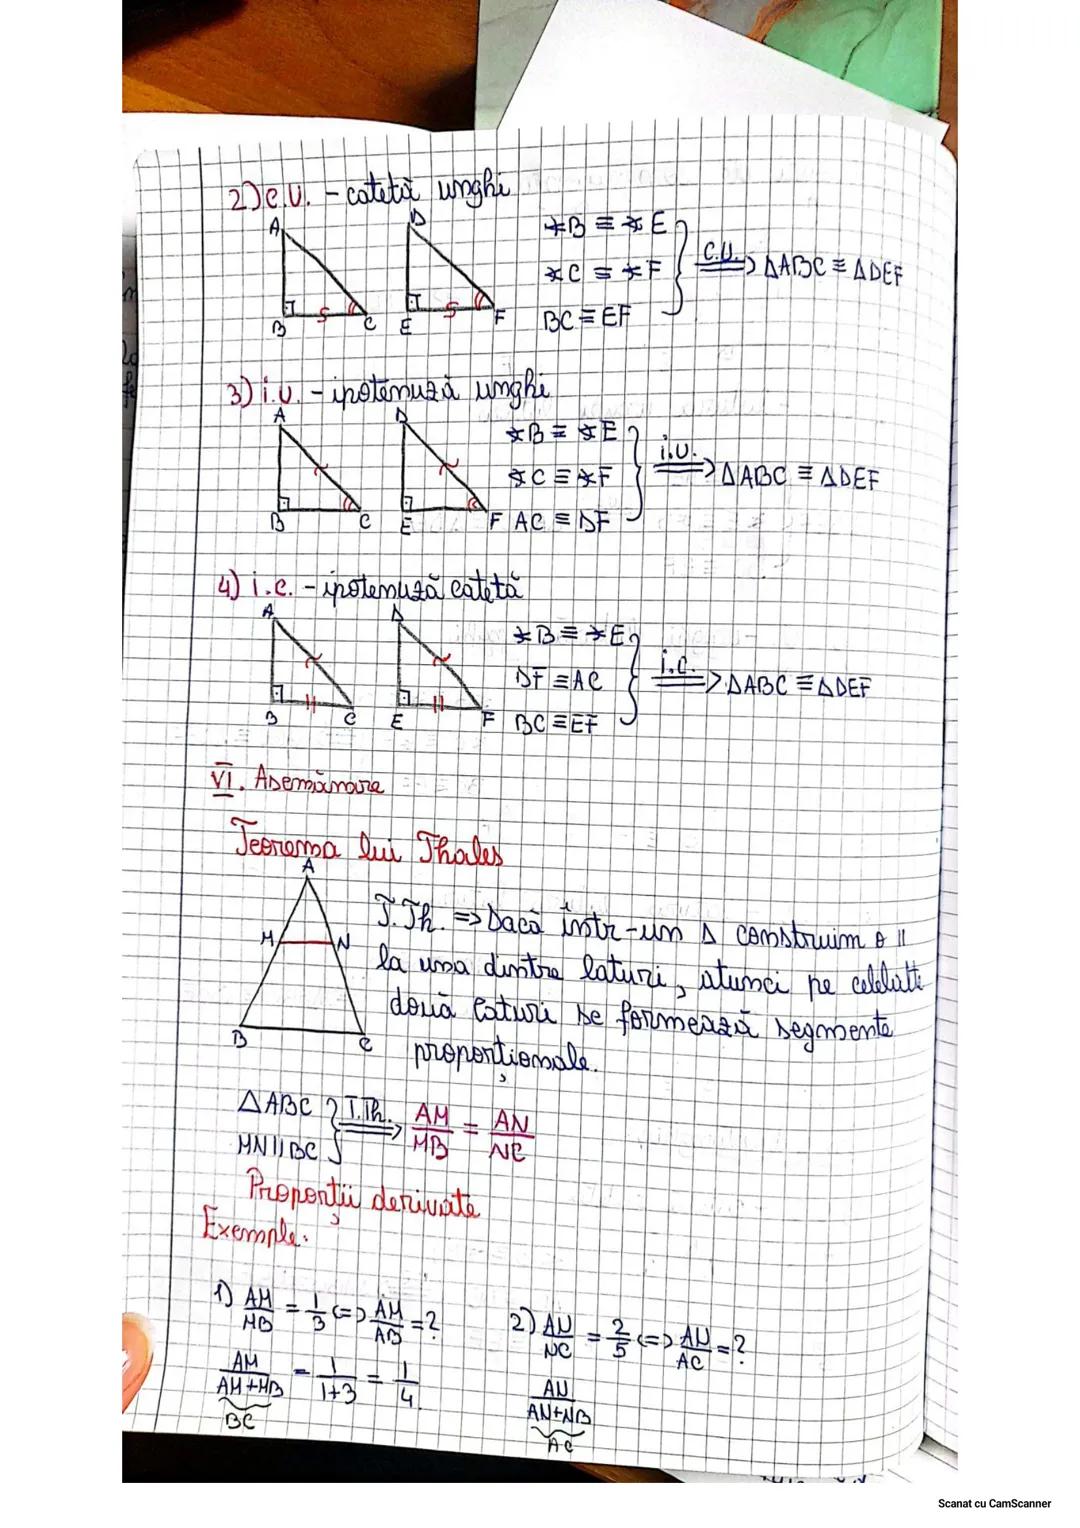 2) C.U. - catetă unghi
A D
B C E F
∢B ≡ ∢E
∢C ≡ ∢F
BC ≡ EF
C.U. => ΔABC ≡ ΔDEF
3) i.u. - ipotenuză unghi
A D
B C E F
∢B ≡ ∢E
∢C ≡ ∢F
AC ≡ DF
i.U. => ΔABC ≡ ΔDEF
4) i.c. - ipotenuză catetă
A D
B C E F
∢B ≡ ∢E
DF ≡ AC
BC ≡ EF
i.C. => ΔABC ≡ ΔDEF
VI. Asemănare
Teorema lui Thales
A
M N
B C
T.Th. => Dacă într-un Δ construim o ||
la una dintre laturi, atunci pe celelalte
două laturi se formează segmente
proporționale.
ΔABC
MN || BC
T.Th. => AM/MB = AN/NC
Proporții derivate
Exemple:
1) AM/MB = 1/3 <=> AM/AB = ?
AM/(AM+MB) = 1/(1+3) = 1/4
BC
2) AN/NC = 2/5 <=> AN/AC = ?
AN/(AN+NB)
AC
Scanat cu CamScanner